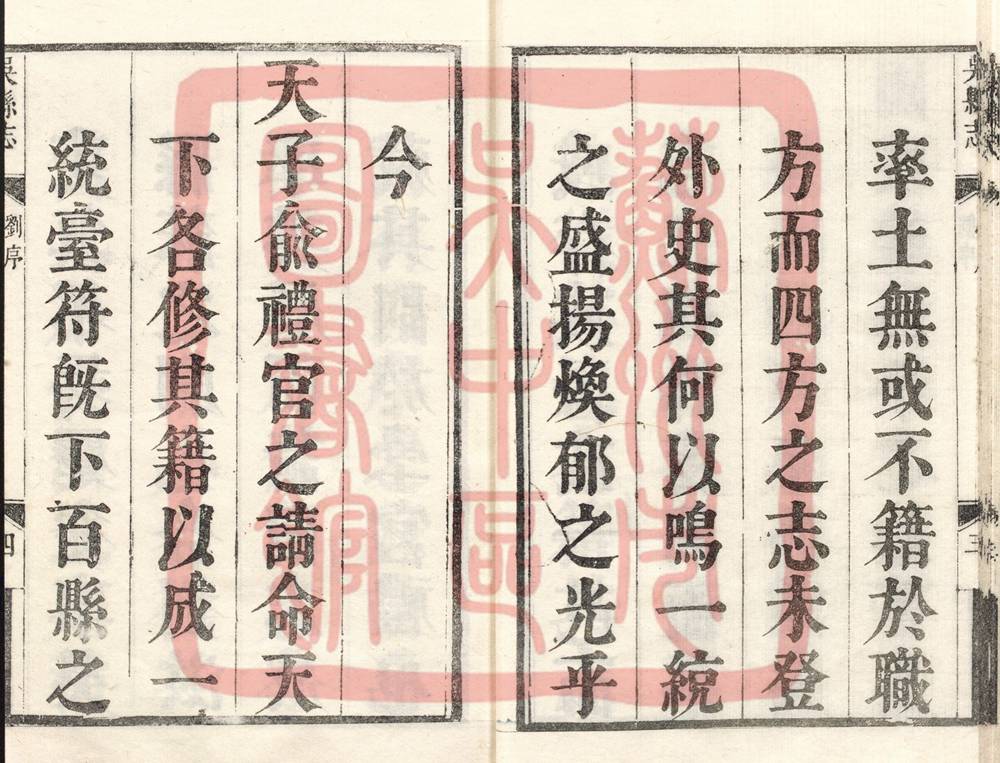 吳縣志
率土無或不籍於職
方而四方之志未登
外史其何以鳴一統
之盛揚煥郁之光乎
今
天子兪禮官之請命天
下各修其籍以成一
統臺符旣下百縣之
吳縣志
劉序
四